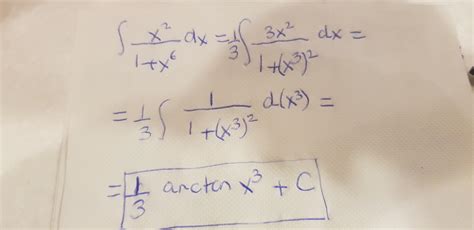 ∫ x²/(1+x⁶) dx = 1/3 ∫ 3x²/(1+(x³)²) dx =
= 1/3 ∫ 1/(1+(x³)²) d(x³) =
= 1/3 arctan x³ + C